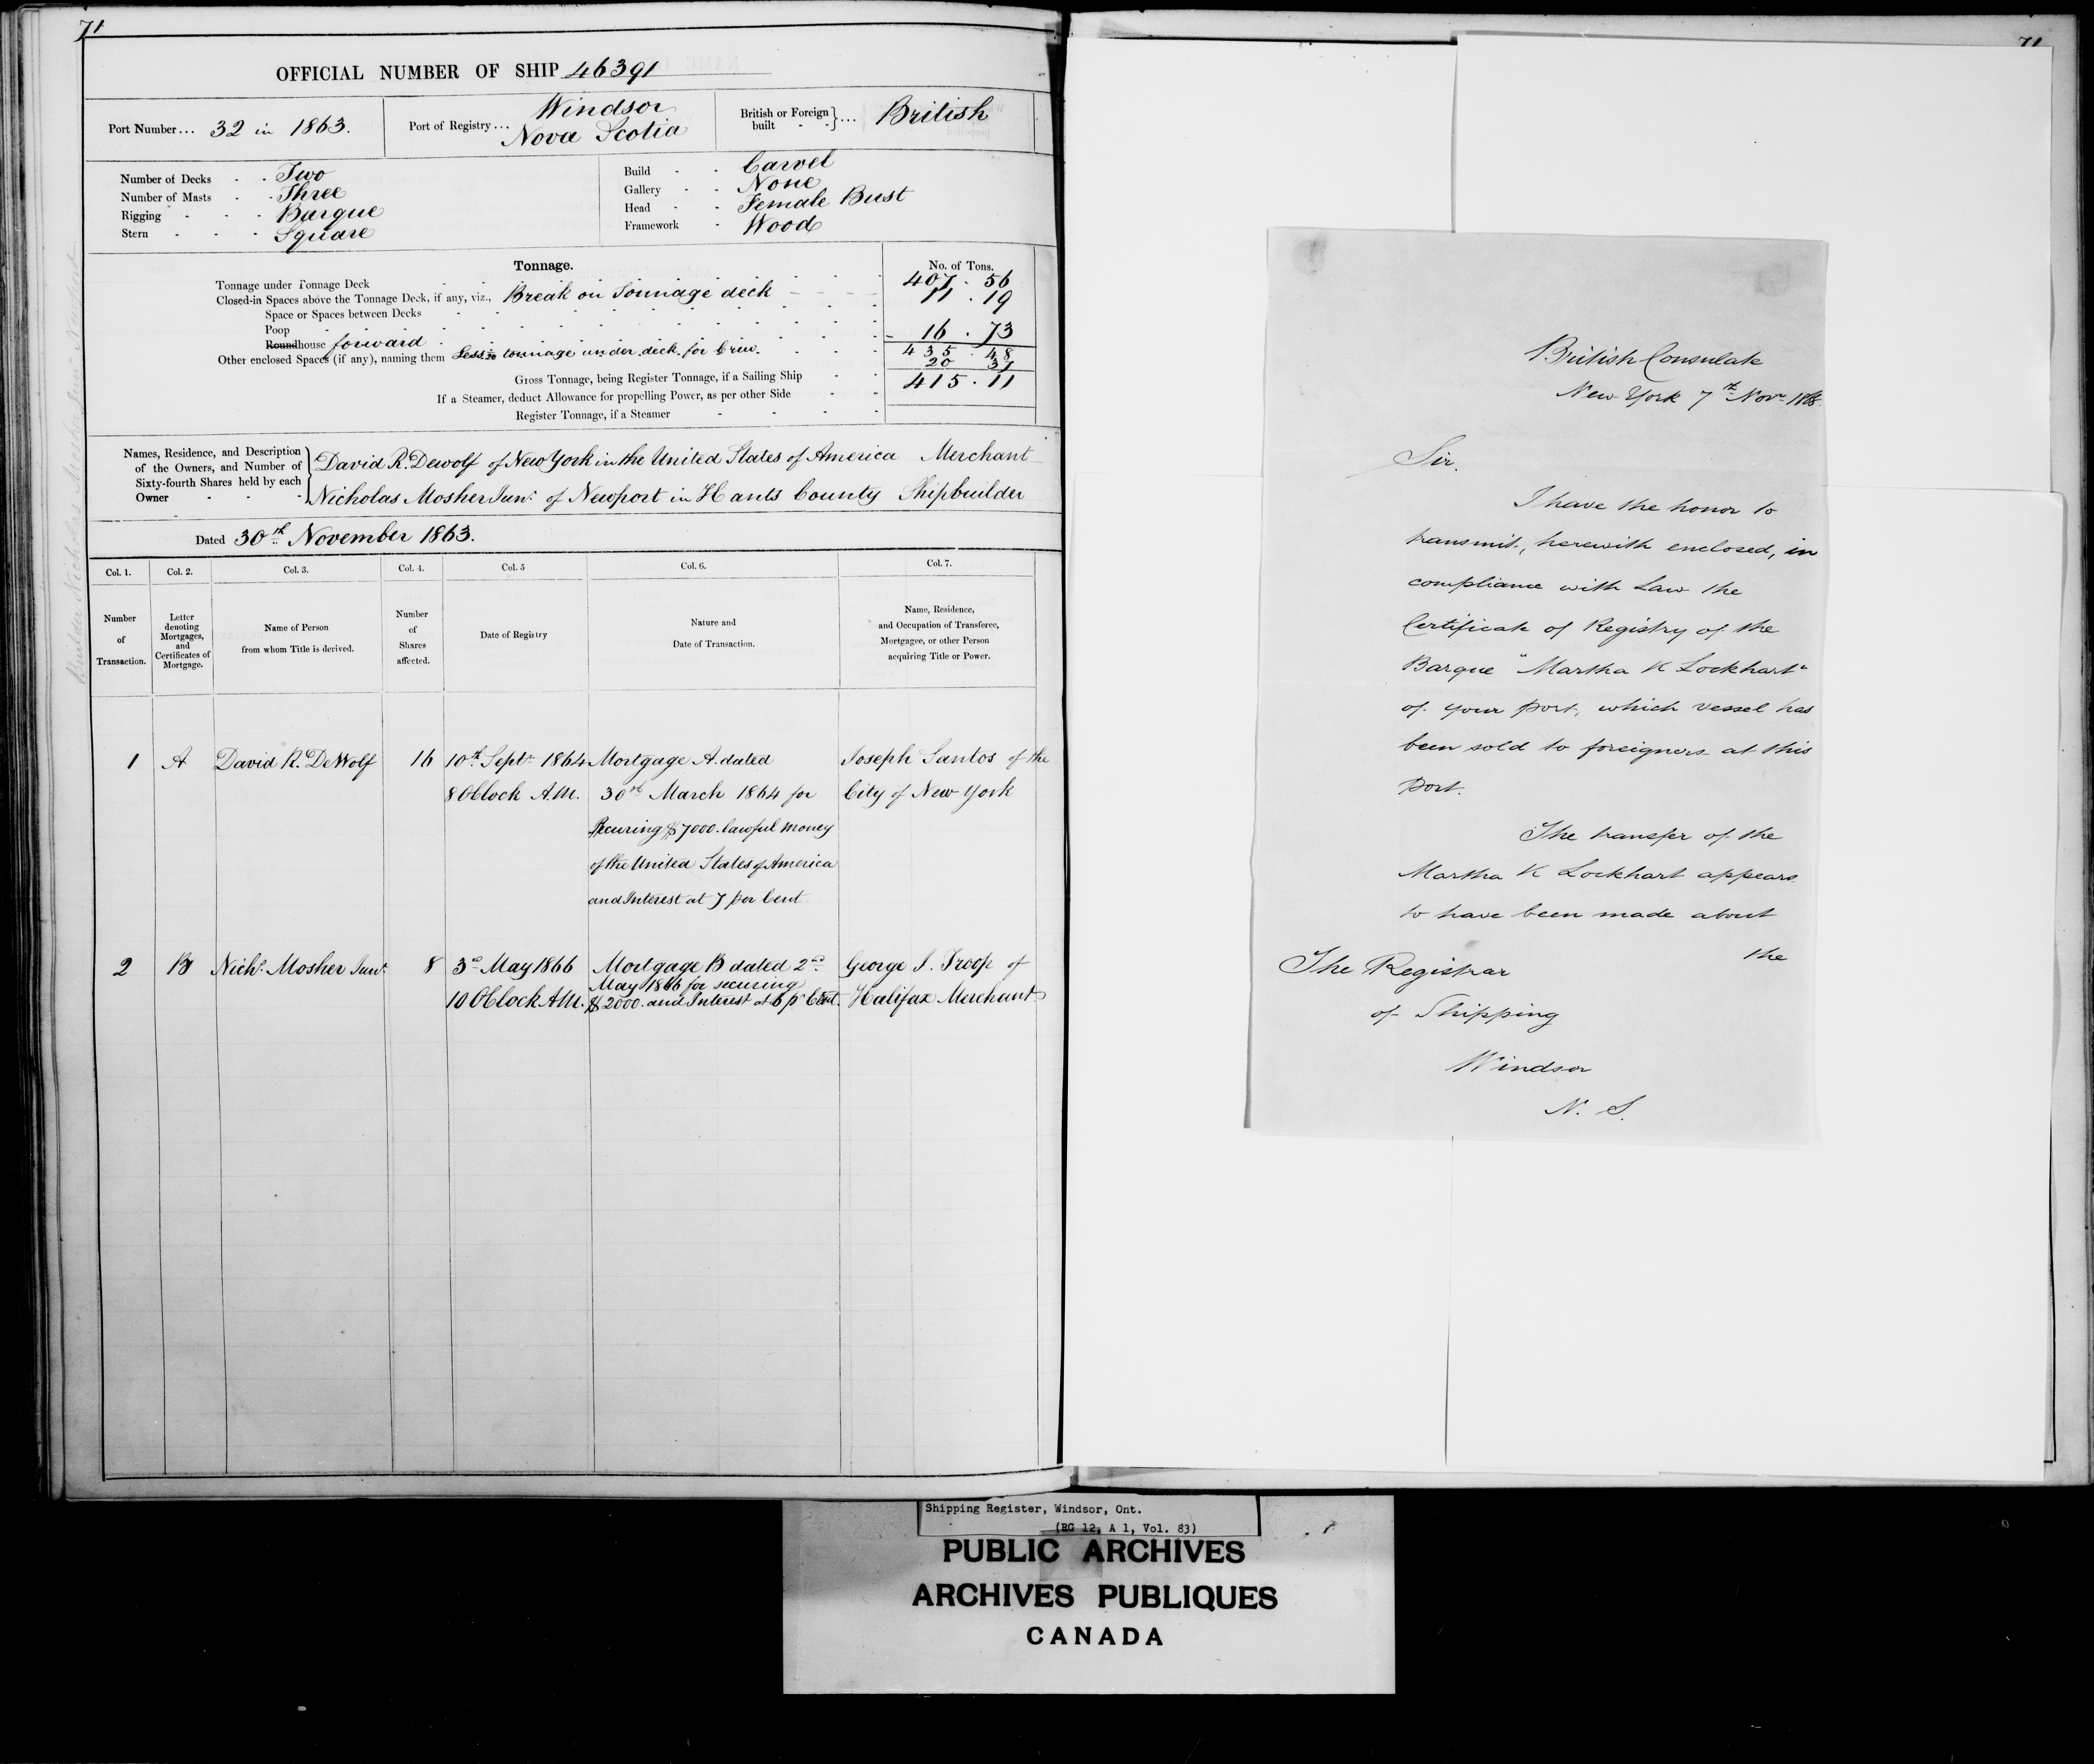 71
OFFICIAL NUMBER OF SHIP 46391
Port Number... 32 in 1863.
Port of Registry... Windsor
Nova Scotia
British or Foreign built }... British
Number of Decks - - Two
Number of Masts - - Three
Rigging - - - Barque
Stern - - - Square
Build - - Carvel
Gallery - - None
Head - - Female Bust
Framework - Wood
Tonnage.
No. of Tons.
Tonnage under Tonnage Deck 407 . 56
Closed-in Spaces above the Tonnage Deck, if any, viz., Break on Tonnage deck 11 . 19
Space or Spaces between Decks
Poop
Roundhouse forward 16 . 73
435 . 48
Other enclosed Spaces (if any), naming them Less tonnage under deck for Crew. 20 37
Gross Tonnage, being Register Tonnage, if a Sailing Ship 415 . 11
If a Steamer, deduct Allowance for propelling Power, as per other Side
Register Tonnage, if a Steamer
Names, Residence, and Description of the Owners, and Number of Sixty-fourth Shares held by each Owner
David R. Dewolf of New York in the United States of America Merchant
Nicholas Mosher Junr. of Newport in Hants County Shipbuilder
Dated 30th November 1863.
Builder Nicholas Mosher Junr Newport
Col. 1. Col. 2. Col. 3. Col. 4. Col. 5 Col. 6. Col. 7.
Number of Transaction.
Letter denoting Mortgages, and Certificates of Mortgage.
Name of Person from whom Title is derived.
Number of Shares affected.
Date of Registry
Nature and Date of Transaction.
Name, Residence, and Occupation of Transferee, Mortgagee, or other Person acquiring Title or Power.
1 A David R. DeWolf 16 10th Septr 1864 Mortgage A. dated Joseph Santos of the
8 OClock A.M. 30th March 1864 for City of New York
Securing $7000. lawful money
of the United States of America
and Interest at 7 per Cent.
2 B Nichs. Mosher Junr. 8 3d May 1866 Mortgage B dated 2nd George J. Troop of
May 1866 for securing
10 OClock AM. $2000. and Interest at 6 pr Cent. Halifax Merchant
71
British Consulate
New York 7th Novr. 1868.
Sir.
I have the honor to
transmit, herewith enclosed, in
compliance with Law the
Certificate of Registry of the
Barque "Martha K Lockhart"
of your port, which vessel has
been sold to foreigners at this
port.
The transfer of the
Martha K Lockhart appears
to have been made about
the
The Registrar
of Shipping
Windsor
N. S.
Shipping Register, Windsor, Ont.
(RG 12, A 1, Vol. 83)
PUBLIC ARCHIVES
ARCHIVES PUBLIQUES
CANADA